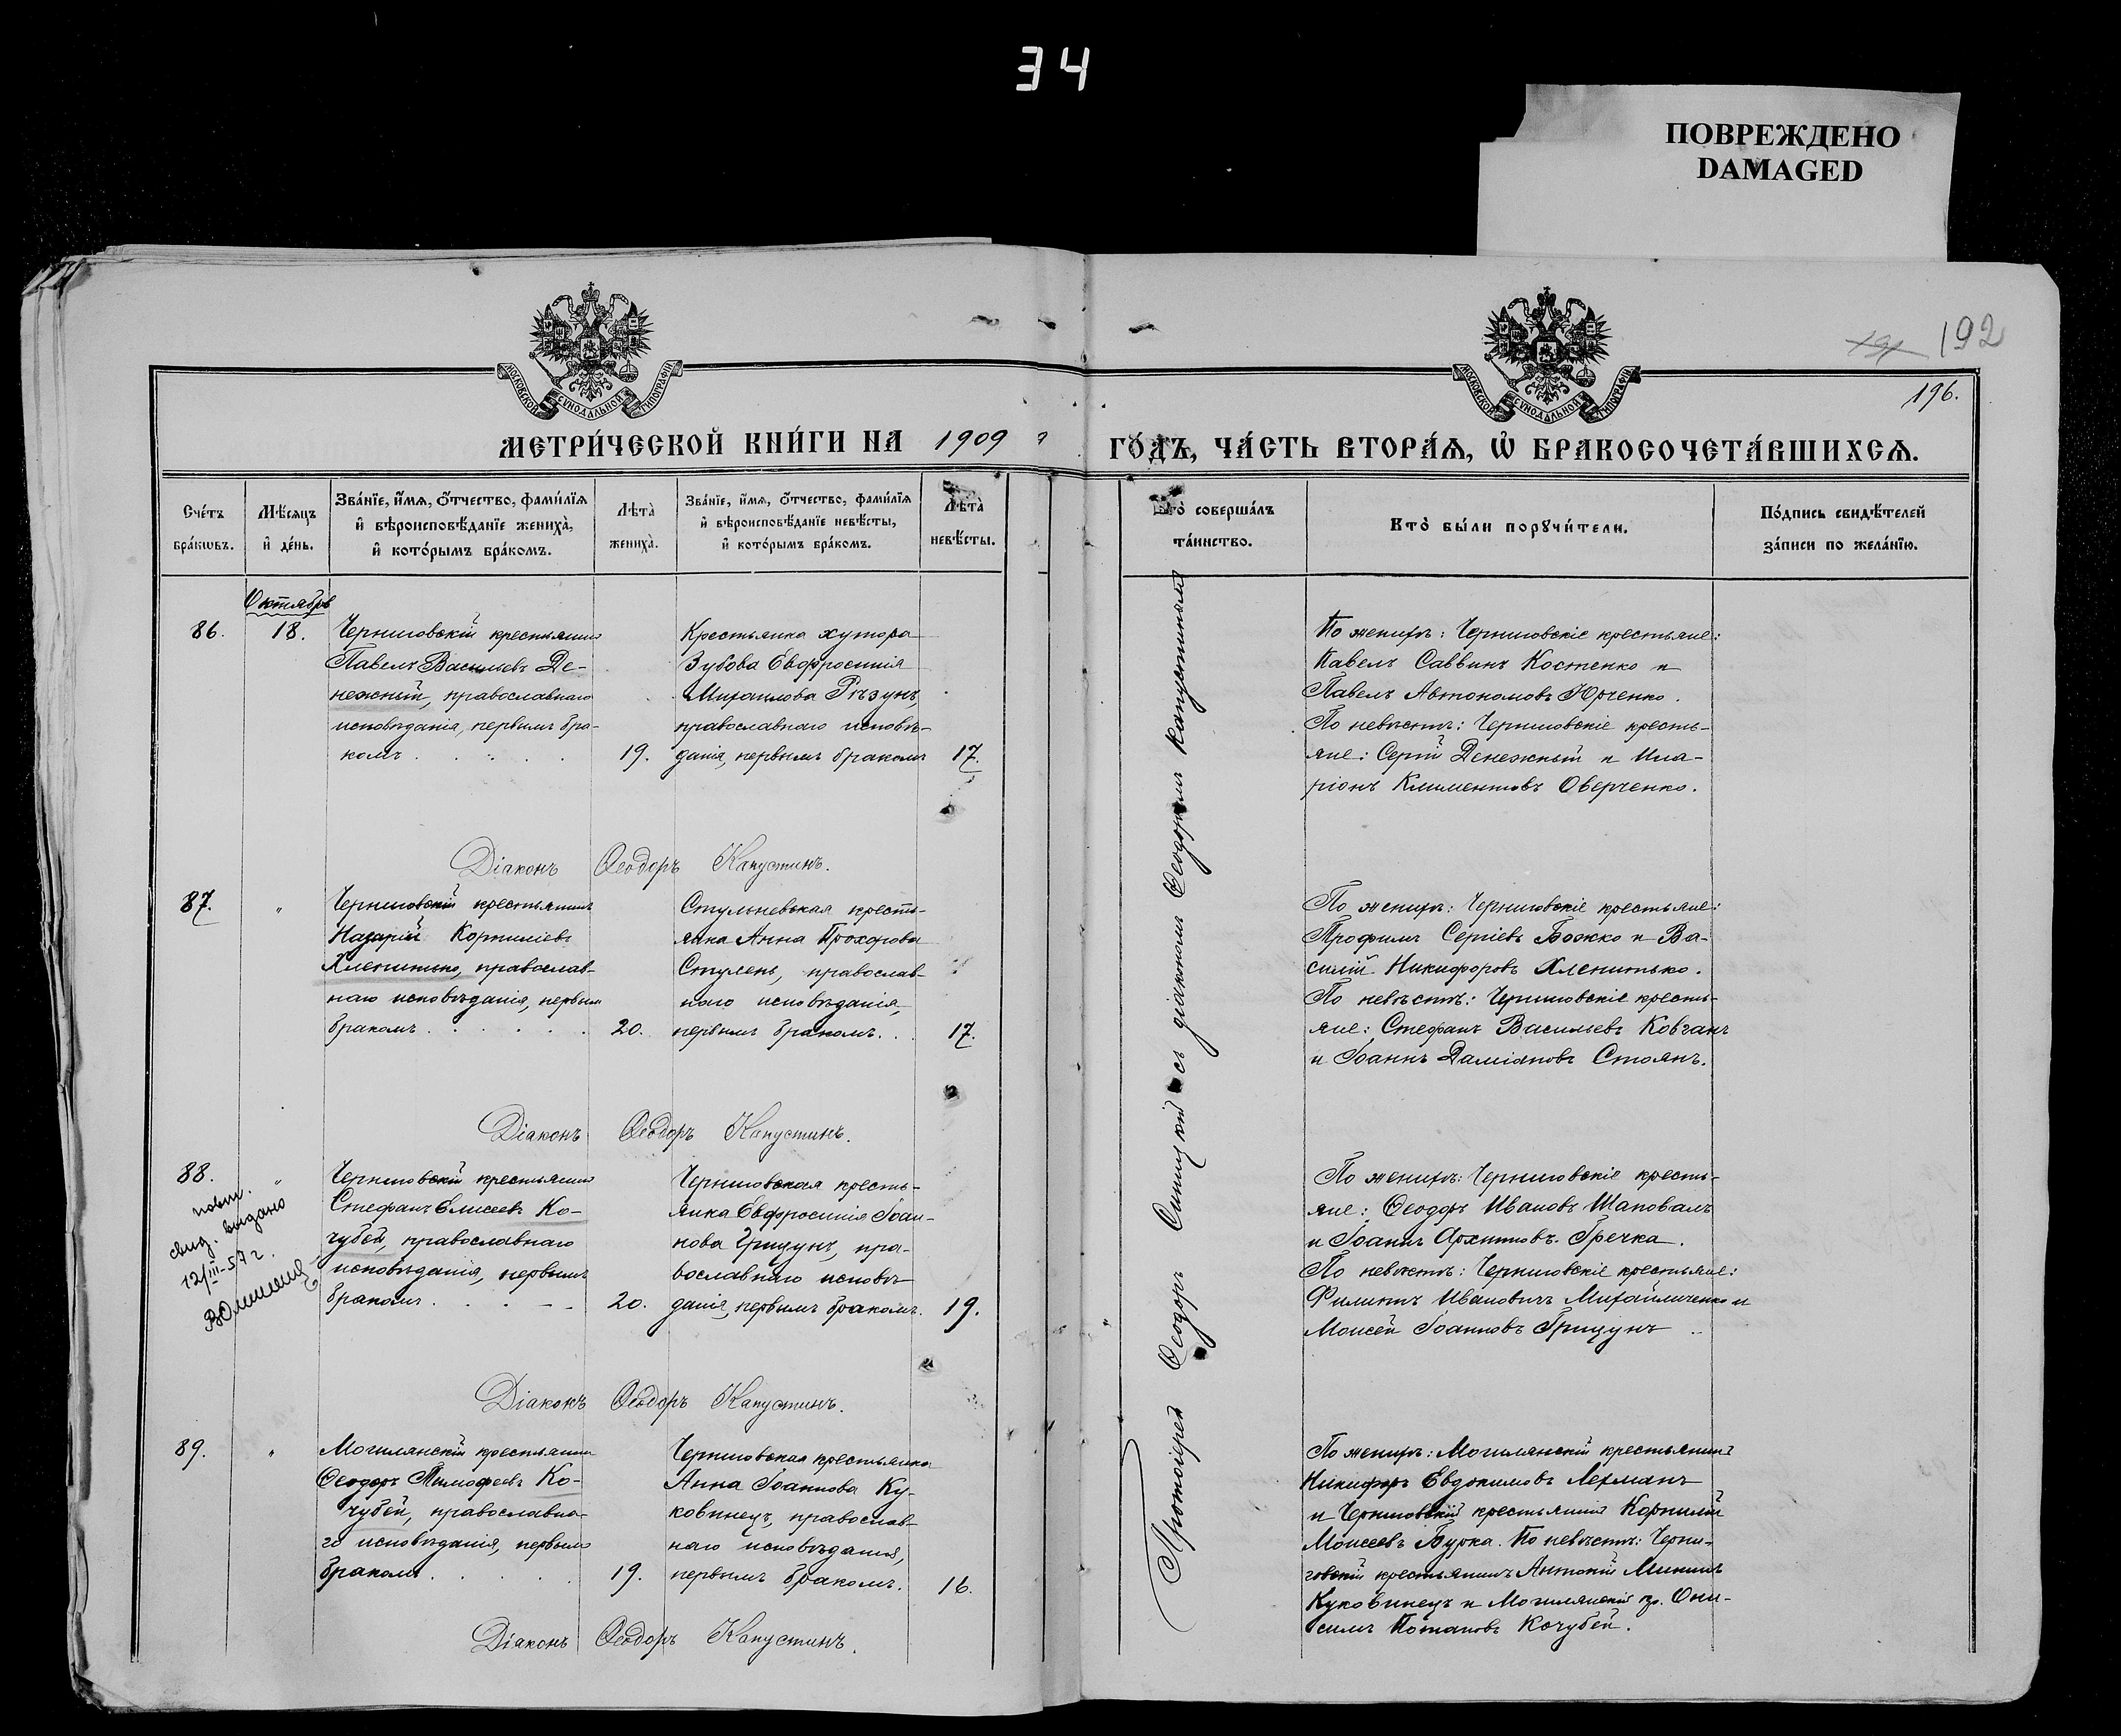 34
ПОВРЕЖДЕНО
DAMAGED
192
196.
МОСКОВСКОЙ СѴНОДАЛЬНОЙ ТИПОГРАФІИ
МОСКОВСКОЙ СѴНОДАЛЬНОЙ ТИПОГРАФІИ
МЕТРИ́ЧЕСКОЙ КНИ́ГИ НА 1909 ГО́ДЪ, ЧА́СТЬ ВТОРА́Ѧ, Ѽ БРАКОСОЧЕТА́ВШИХСѦ.
Сче́тъ
бра́кѡвъ.
Мѣ́сѧцъ
и҆ де́нь.
Зва́нїе, и҆́мѧ, ѻ҆́тчество, фами́лїѧ
и҆ вѣроисповѣ́данїе жениха̀,
и҆ кото́рымъ бра́комъ.
Лѣта̀
жениха̀.
Зва́нїе, и҆́мѧ, ѻ҆́тчество, фами́лїѧ
и҆ вѣроисповѣ́данїе невѣ́сты,
и҆ кото́рымъ бра́комъ.
Лѣта̀
невѣ́сты.
Кто̀ соверша́лъ
та́инство.
Кто̀ бы́ли порꙋчи́тели.
По́дпись свидѣ́телей
за́писи по жела́нїю.
Октябрь
86.
18.
Черниговскій крестьянинъ
Павелъ Васильевъ Де-
нежный, православнаго
исповѣданія, первымъ бра-
комъ
19.
Крестьянка хутора
Зубова Евфросинія
Михаилова Рѣзунъ,
православнаго исповѣ-
данія, первымъ бракомъ
17.
По женихѣ: Черниговскіе крестьяне:
Павелъ Саввинъ Костенко и
Павелъ Автономовъ Юрченко.
По невѣстѣ: Черниговскіе кресть-
яне: Сергій Денежный и Ила-
ріонъ Климентовъ Оверченко.
Діаконъ Ѳеодоръ Капустинъ.
87.
"
Черниговскій крестьянинъ
Назарій Корниліевъ
Хленитько, православ-
наго исповѣданія, первымъ
бракомъ
20.
Стульневская кресть-
янка Анна Прохорова
Стулень, православ-
наго исповѣданія,
первымъ бракомъ.
17.
По женихѣ: Черниговскіе крестьяне:
Трофимъ Сергіевъ Божко и Ва-
силій Никифоровъ Хленитько.
По невѣстѣ: Черниговскіе кресть-
яне: Стефанъ Васильевъ Ковганъ
и Іоаннъ Даміановъ Стоянъ.
Діаконъ Ѳеодоръ Капустинъ.
88.
"
повт.
свид. выдано
12/III-57 г.
Черниговскій крестьянинъ
Стефанъ Елисеевъ Ко-
чубей, православнаго
исповѣданія, первымъ
бракомъ
20.
Черниговская кресть-
янка Евфросинія Іоан-
нова Грицунъ, пра-
вославнаго исповѣ-
данія, первымъ бракомъ.
19.
По женихѣ: Черниговскіе кресть-
яне: Ѳеодоръ Ивановъ Шаповалъ
и Іоаннъ Архиповъ Гречка.
По невѣстѣ: Черниговскіе крестьяне:
Филиппъ Ивановичъ Михайличенко и
Моисей Іоанновъ Грицунъ
Діаконъ Ѳеодоръ Капустинъ.
89.
"
Могилянскій крестьянинъ
Ѳеодоръ Тимофеевъ Ко-
чубей, православна-
го исповѣданія, первымъ
бракомъ
19.
Черниговская крестьянка
Анна Іоаннова Ку-
ковинецъ, православ-
наго исповѣданія,
первымъ бракомъ.
16.
По женихѣ: Могилянскій крестьянинъ
Никифоръ Евдокимовъ Лехманъ
и Черниговскій крестьянинъ Корнилій
Моисеевъ Бурка. По невѣстѣ: Черни-
говскій крестьянинъ Антоній Мининъ
Куковинецъ и Могилянскій кр. Они-
симъ Потаповъ Кочубей.
Діаконъ Ѳеодоръ Капустинъ.
Протоіерей Ѳеодоръ Синицкій съ діакономъ Ѳеодоромъ Капустинымъ